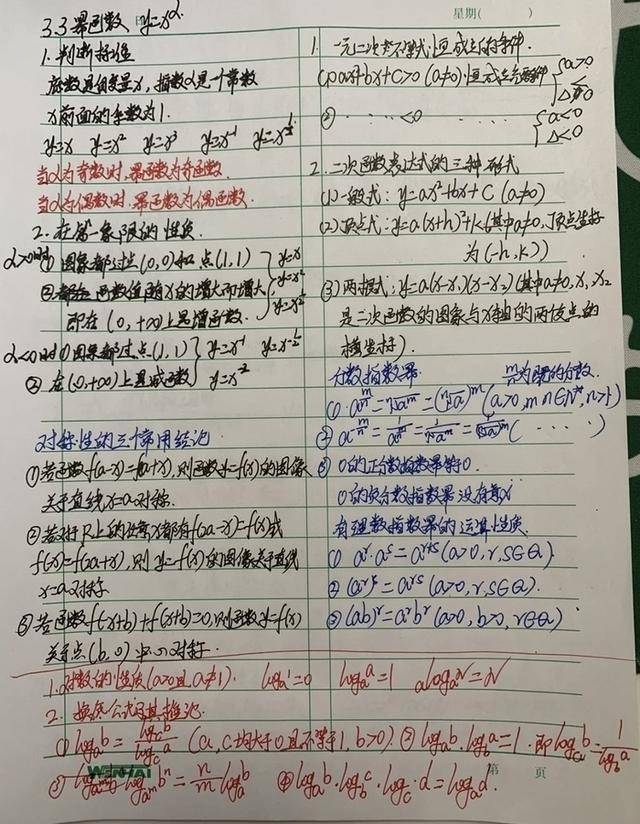 星期(
3.3 幂函数 y=x^α
1. 判断特性
底数是自变量x，指数α是一个常数
x前面的系数为1.
y=x y=x² y=x³ y=x⁻¹ y=x^½
当α为奇数时.幂函数为奇函数.
当α为偶数时.幂函数为偶函数.
2. 在第一象限的性质.
α>0时① 图象都过点(0,0)和点(1,1)
② 函数值随x的增大而增大
即在(0,+∞)上是增函数.
y=x
y=x²
y=x^½
α<0时① 图象都过点(1,1)
② 在(0,+∞)上是减函数
y=x⁻¹ y=x^-½
y=x⁻²
对称性的三个常用结论
①若函数f(a-x)=f(a+x),则函数y=f(x)的图像
关于直线x=a对称.
②若对于R上的任意x都有f(2a-x)=f(x)或
f(-x)=f(2a+x),则y=f(x)的图像关于直线
x=a对称
③若函数f(-x+b)+f(x+b)=0,则函数y=f(x)
关于点(b,0)中心对称.
1. 一元二次不等式恒成立的条件.
(1) ax²+bx+c>0 (a≠0)恒成立
a>0
Δ<0
② · · · · <0 · · · ·
a<0
Δ<0
2. 二次函数表达式的三种形式
(1)一般式: y=ax²+bx+c (a≠0)
(2)顶点式: y=a(x+h)²+k(其中a≠0,顶点坐标
为(-h,k))
(3)两根式: y=a(x-x₁)(x-x₂)(其中a≠0,x₁,x₂
是二次函数的图象与x轴的两个交点的
横坐标).
分数指数幂. m/n为既约分数.
① a^(m/n)=ⁿ√a^m=(ⁿ√a)^m (a>0,m n∈N*,n>1)
② a^(-m/n)=1/a^(m/n)=1/ⁿ√a^m=1/(ⁿ√a)^m ( · · · · · )
③ 0的正分数指数幂等于0.
0的负分数指数幂没有意义
有理数指数幂的运算性质
① a^r·a^s=a^(r+s) (a>0,r,s∈Q)
② (a^r)^s=a^rs (a>0,r,s∈Q).
③ (ab)^r=a^r b^r (a>0,b>0,r∈Q)
1.对数的性质(a>0且a≠1). log_a 1=0 log_a a=1 a^(log_a N)=N
2. 换底公式与其推论.
① log_a b=log_c b/log_c a (a,c均大于0且不等于1,b>0) ② log_a b·log_b a=1.即log_a b=1/log_b a
③ log_a^m b^n=n/m log_a b ④ log_a b·log_b c·log_c d=log_a d.
第 页